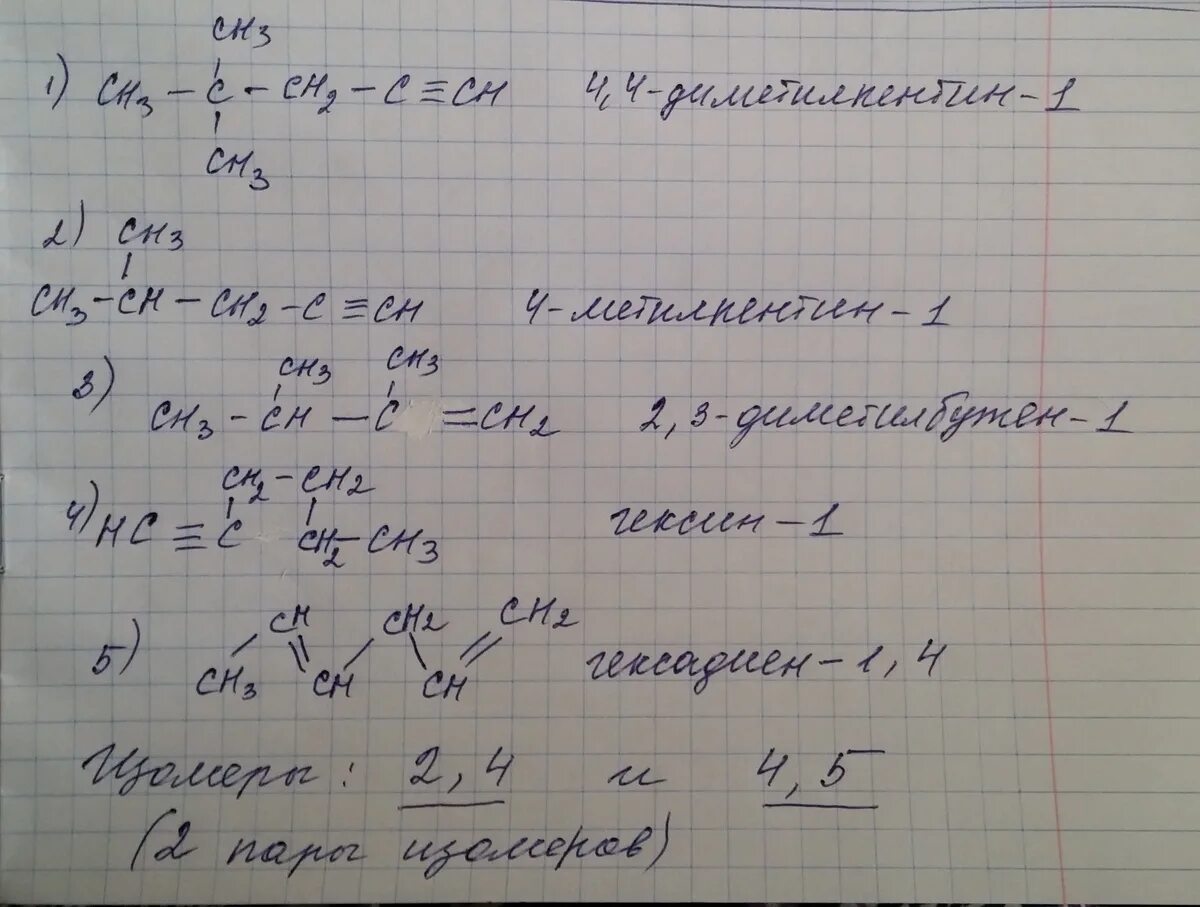 CH3
1) CH3 – C – CH2 – C ≡ CH 4,4-диметилпентин-1
CH3
2) CH3
CH3 – CH – CH2 – C ≡ CH 4-метилпентин-1
3) CH3 CH3
CH3 – CH – C = CH2 2,3-диметилбутен-1
CH2 – CH2
4) HC ≡ C CH2 – CH3 гексин-1
CH CH2 CH2
5) CH3 CH CH гексадиен-1,4
Изомеры: 2,4 и 4,5
(2 пары изомеров)